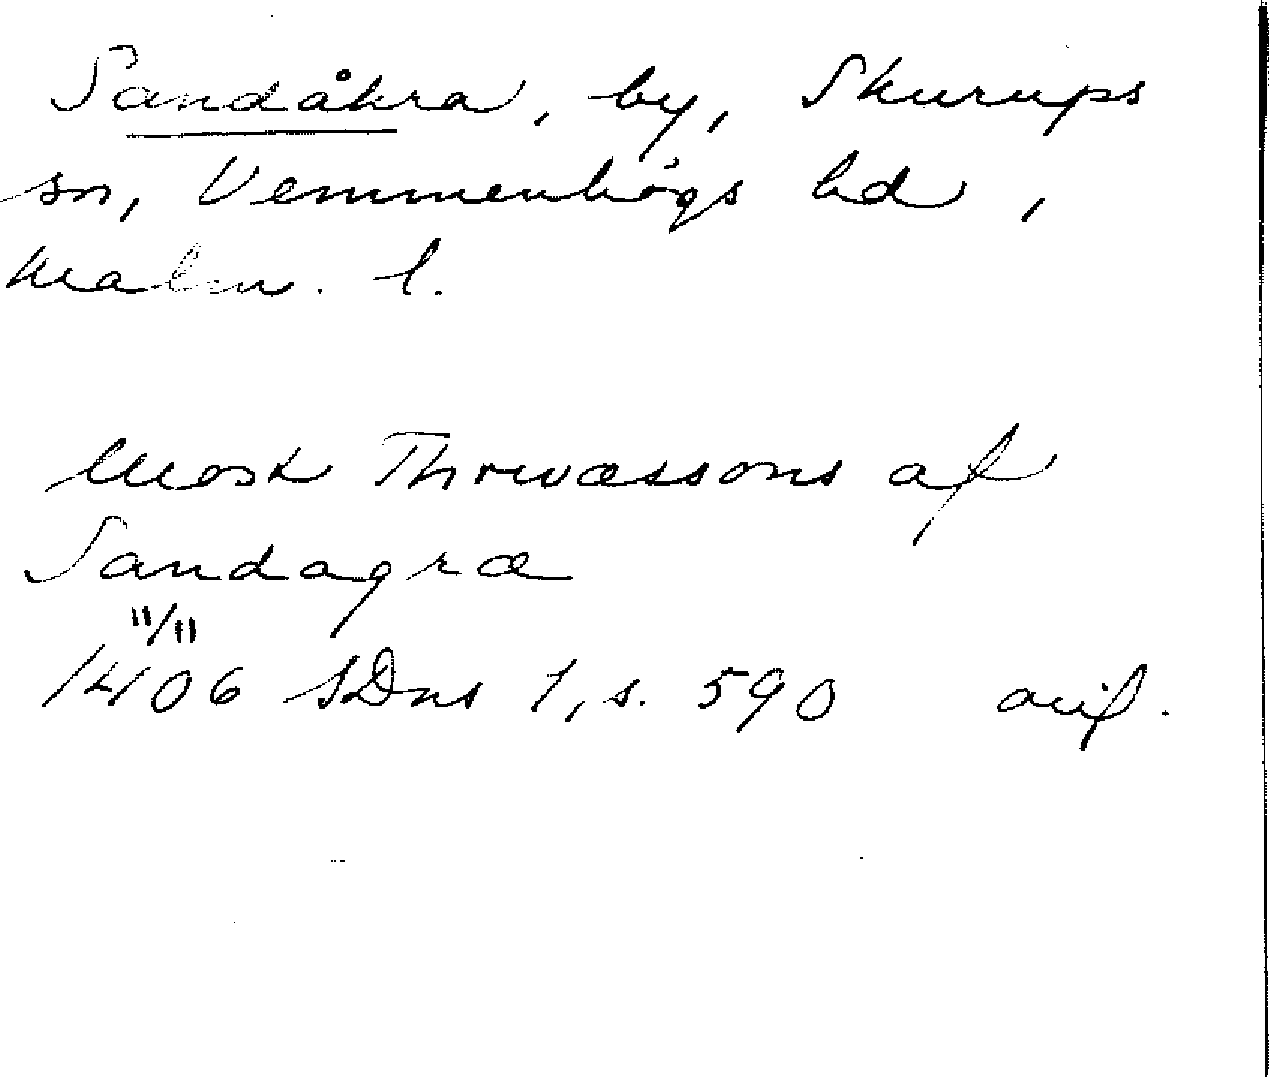 Sandåkra, by, Skurups
sn, Vemmenhögs hd,
Malm. l.
Mosk Thrwæssons af
Sandagræ
11/11
1406 SDns 1, s. 590 avif.